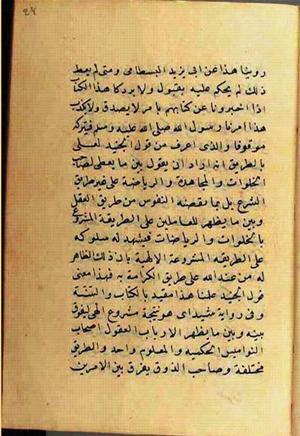 روينا هذا عن ابى يزيد البسطامى ومتى لم يعط
ذلك لم يحكم عليه بقبول ولا برد كما هذا الكتاب
اذا اخبرونا عن كتابهم بامر لا يصدق ولا يكذب
هذا امرنا رسول الله صلى الله عليه وسلم فيتركه
موقوفا والذى اعرف من قول الجنيد
بالطريق انه اراد ان يقول بين ما يعطى لصاحب
الخلوات والمجاهدة والرياضة على غير طريق
الشرع بل بما تقتضيه النفوس من طريق العقل
وبين ما يظهر للعاملين على الطريقة المشروعة
بالخلوات والرياضات فيشهد له سلوكه
على الطريقة المشروعة الالهية بان ذلك الظاهر
له من عند الله على طريق الكرامة به فهذا معنى
قول الجنيد علمنا هذا مقيد بالكتاب والسنة
وفى رواية مشيد اى هو نتيجة مشروع الهى ليفرق
بينه وبين ما يظهر لارباب العقول اصحاب
النواميس الحكمية والمعلوم واحد والطريق
مختلفة وصاحب الذوق يفرق بين الامرين